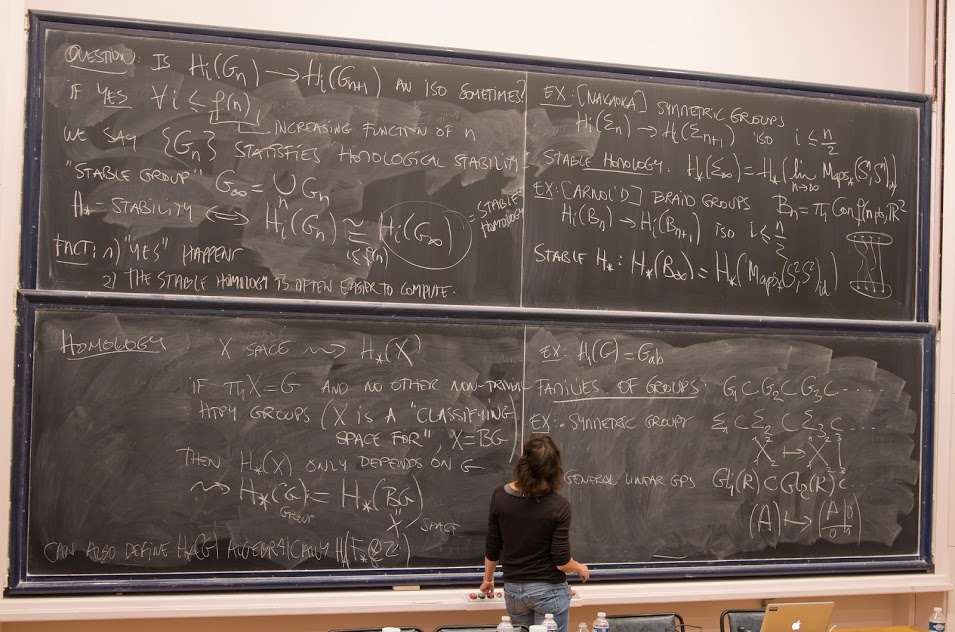 QUESTION: IS Hi(Gn) → Hi(Gn+1) AN ISO SOMETIMES?
IF YES ∀ i ≤ f(n)
INCREASING FUNCTION OF n
WE SAY {Gn} SATISFIES HOMOLOGICAL STABILITY
"STABLE GROUP" G∞ = ∪n Gn
H* - STABILITY ⟺ Hi(Gn) ≅ Hi(G∞) = STABLE HOMOLOGY
i ≤ f(n)
FACT: 1) "YES" HAPPENS
2) THE STABLE HOMOLOGY IS OFTEN EASIER TO COMPUTE.
EX: [NAKAOKA] SYMMETRIC GROUPS
Hi(Σn) → Hi(Σn+1) ISO i ≤ n/2
STABLE HOMOLOGY. H*(Σ∞) = H*(lim n→∞ Maps*(Sⁿ,Sⁿ)id)
EX: [ARNOL'D] BRAID GROUPS Bn = π1 Conf(n pts, ℝ²)
Hi(Bn) → Hi(Bn+1) ISO i ≤ n/2
STABLE H*: H*(B∞) = H*(Maps*(S²,S²)id)
HOMOLOGY: X SPACE ⇝ H*(X)
IF π1X = G AND NO OTHER NON-TRIVIAL
HTPY GROUPS (X IS A "CLASSIFYING
SPACE FOR", X = BG)
THEN H*(X) ONLY DEPENDS ON G
⇝ H*(G) := H*(BG)
GROUP
X SPACE
CAN ALSO DEFINE H*(G) ALGEBRAICALLY
EX: H1(G) = Gab
FAMILIES OF GROUPS: G1 ⊂ G2 ⊂ G3 ⊂ ....
EX: • SYMMETRIC GROUPS Σ1 ⊂ Σ2 ⊂ Σ3 ⊂ ....
GENERAL LINEAR GPS GL1(R) ⊂ GL2(R) ⊂ ....
(A) ↦ (A 0
0 1)